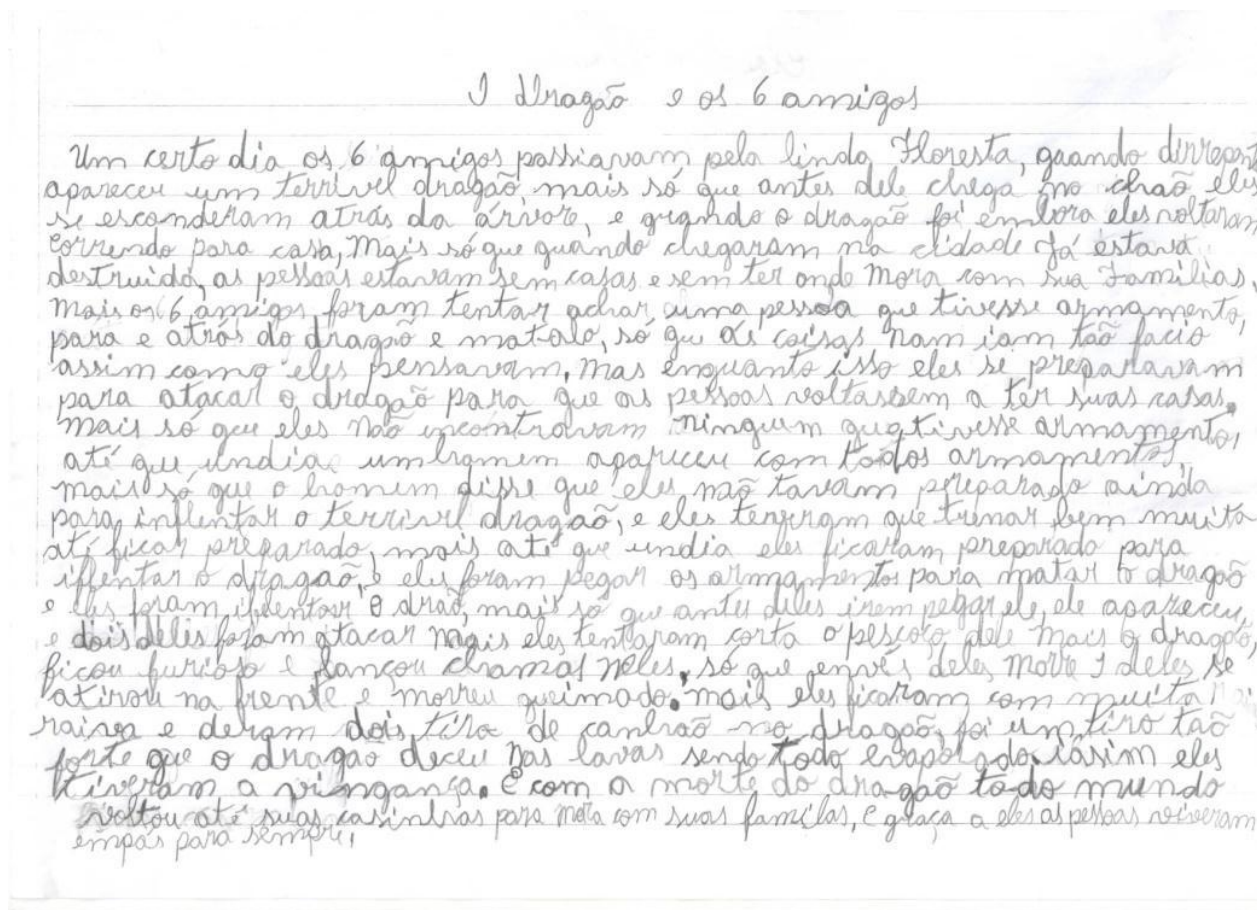 O dragão e os 6 amigos
Um certo dia os 6 amigos passiavam pela linda Floresta, quando dirrepent
apareceu um terrivel dragão, mais só que antes dele chega no chaõ eles
se esconderam atrás da árvore, e quando o dragão foi embora eles voltaram
correndo para casa, Mais só que quando chegaram na cidade já estava
destruida, as pessoas estavam sem casas e sem ter onde mora com sua Familias,
mais os 6 amigos foram tentar achar uma pessoa que tivesse armamento,
para e atrás do dragão e mata-lo, só que as coisas nam iam tão facio
assim como eles pensavam, mas enquanto isso eles se preparavam
para atacar o dragão para que as pessoas voltassem a ter suas casas.
mais só que eles não encontravam ninguem que tivesse armamento,
até que undia um homem apareceu com todos armamentos,
mais só que o homem disse que eles não tavam preparado ainda
para inflentar o terrivel dragaõ, e eles tenviram que trenar bem muito
até ficar preparado, mais até que undia eles ficaram preparado para
iflentar o dragaõ, e eles foram pegar os armamentos para matar o dragão
e eles foram iflentar o draõ, mais só que antes deles irem pegar ele, ele apareceu,
e dois deles foram atacar mais eles tentaram corta o pescoço dele mais o dragão,
ficou furioso e lançou chamas neles, só que envés deles morre 1 deles se
atirou na frente e morreu queimado. mais eles ficaram com muita
raiva e deram dois tiro de canhaõ no dragaõ, foi um tiro taõ
forte que o dragão deceu nas lavas sendo todo evaporado. iássim eles
tiveram a vingança. E com a morte do dragão todo mundo
voltou até suas casinhas para mora com suas familas, e graça a eles as pessoas viveram
empás para sempre.